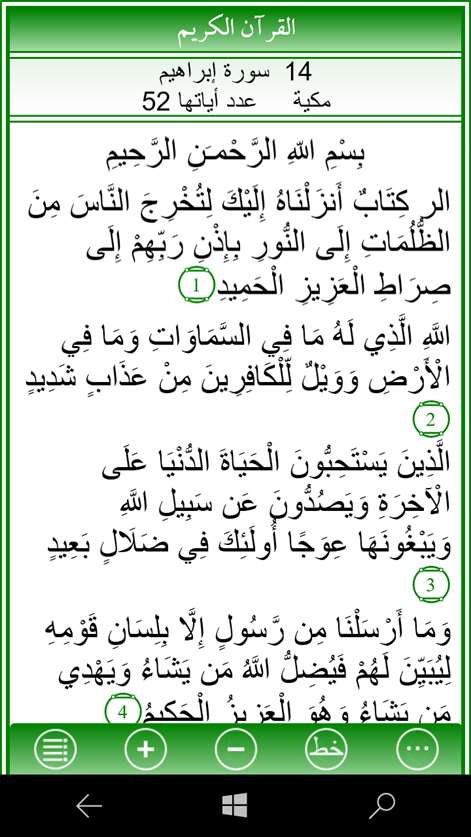 القرآن الكريم
14 سورة إبراهيم
مكية عدد أياتها 52
بِسْمِ اللّهِ الرَّحْمـَنِ الرَّحِيمِ
الر كِتَابٌ أَنزَلْنَاهُ إِلَيْكَ لِتُخْرِجَ النَّاسَ مِنَ
الظُّلُمَاتِ إِلَى النُّورِ بِإِذْنِ رَبِّهِمْ إِلَى
صِرَاطِ الْعَزِيزِ الْحَمِيدِ 1
اللَّهِ الَّذِي لَهُ مَا فِي السَّمَاوَاتِ وَمَا فِي
الْأَرْضِ وَوَيْلٌ لِّلْكَافِرِينَ مِنْ عَذَابٍ شَدِيدٍ
2
الَّذِينَ يَسْتَحِبُّونَ الْحَيَاةَ الدُّنْيَا عَلَى
الْآخِرَةِ وَيَصُدُّونَ عَن سَبِيلِ اللَّهِ
وَيَبْغُونَهَا عِوَجًا أُولَئِكَ فِي ضَلَالٍ بَعِيدٍ
3
وَمَا أَرْسَلْنَا مِن رَّسُولٍ إِلَّا بِلِسَانِ قَوْمِهِ
لِيُبَيِّنَ لَهُمْ فَيُضِلُّ اللَّهُ مَن يَشَاءُ وَيَهْدِي
مَن يَشَاءُ وَهُوَ الْعَزِيزُ الْحَكِيمُ 4
خط